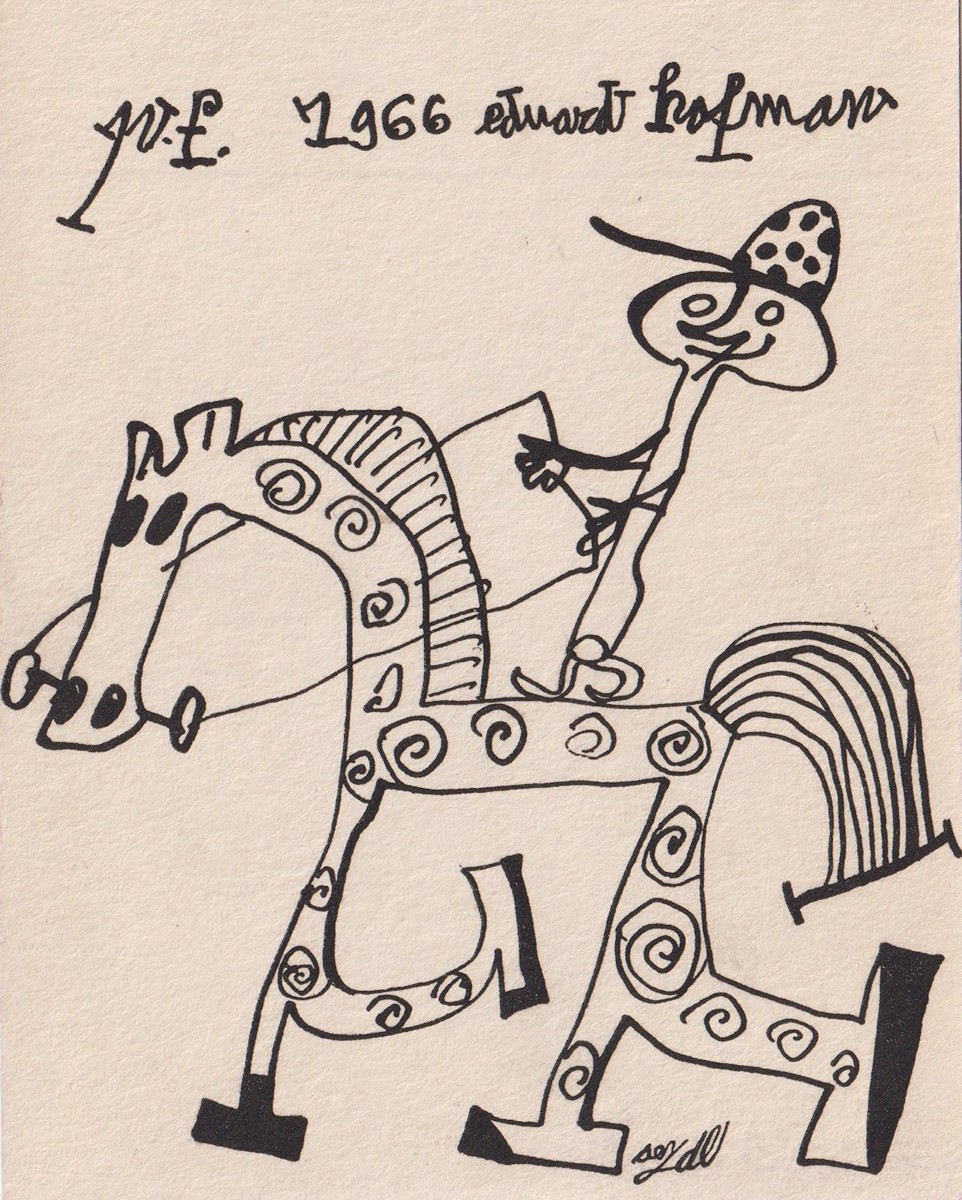 p.f. 1966 eduard hofman
seydl